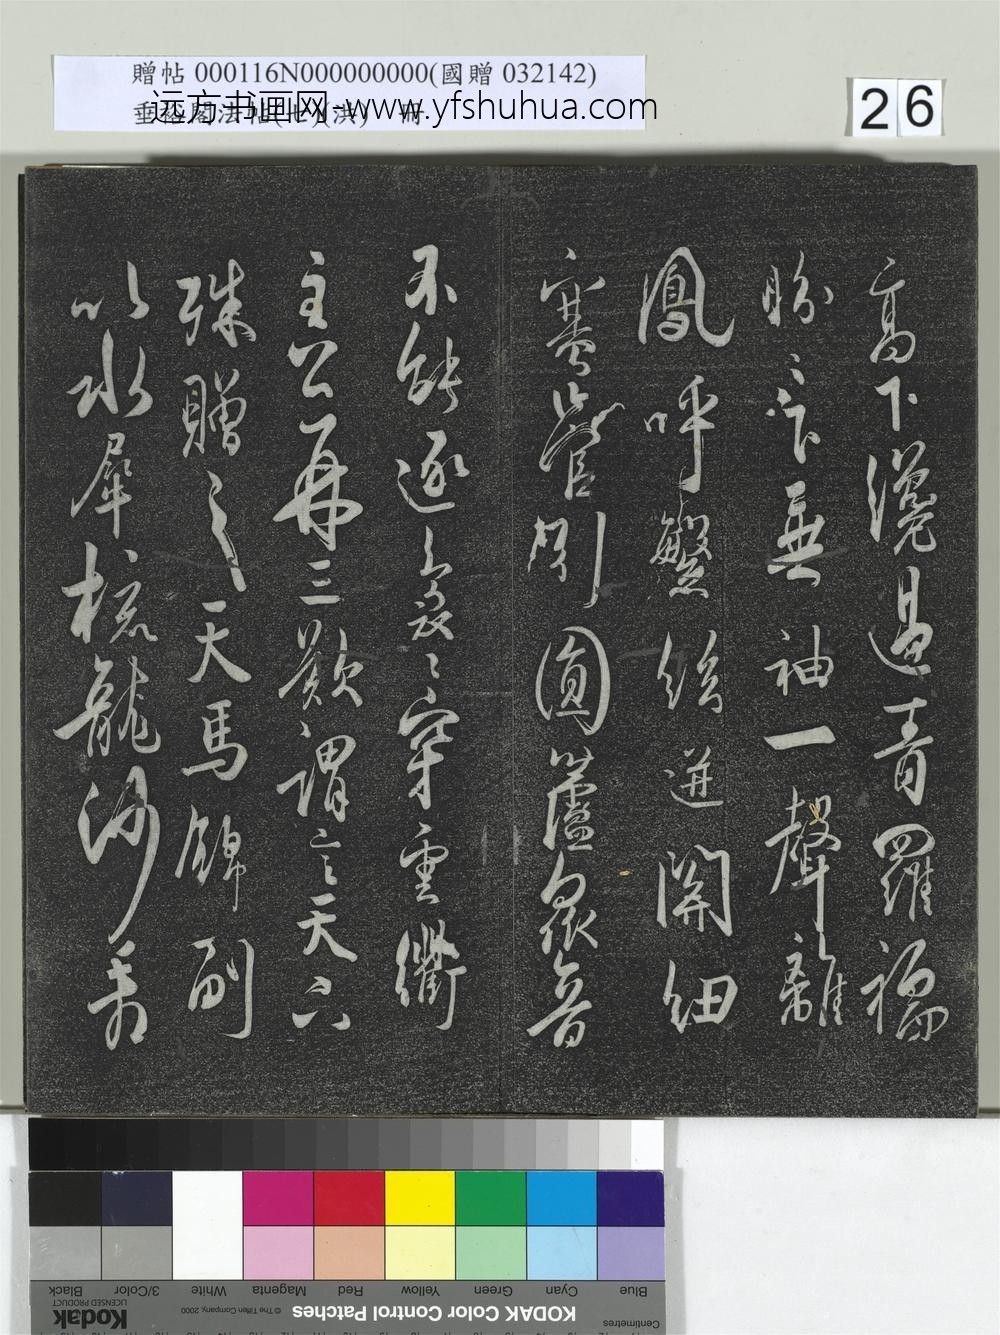 贈帖 000116N000000000(國贈 032142)
远方书画网-www.yfshuhua.com
26
高下纔過青羅襦
盼〻乍垂袖一聲雛
鳳呼繁絃迸關紐
塞管引圓蘆衆音
不能逐裊〻穿雲衢
主公再三歎謂言天下
殊贈之天馬錦副
以水犀梳龍沙看
Blue Cyan Green Yellow Red Magenta White 3/Color Black
Centimetres KODAK Color Control Patches © The Tiffen Company, 2000 Kodak LICENSED PRODUCT